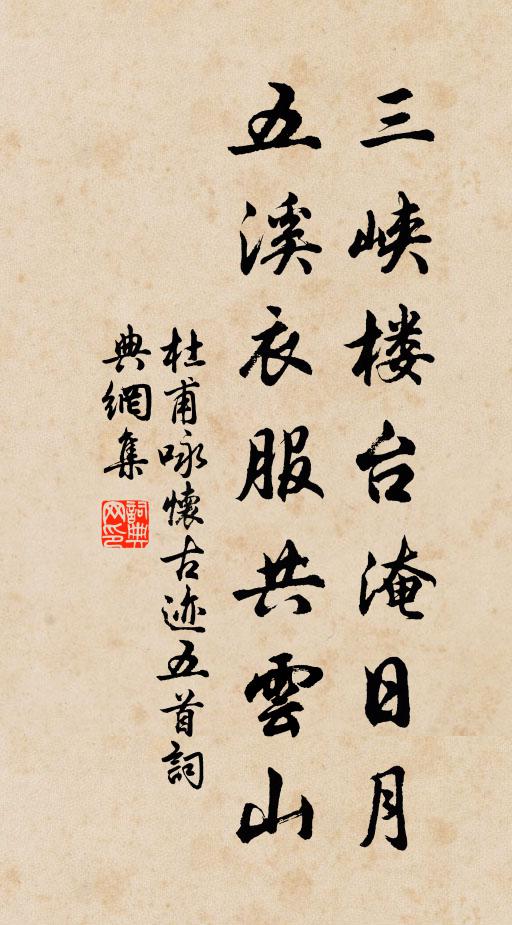 三峡楼台淹日月
五溪衣服共雲山
杜甫咏懷古迹五首詞
典網集
詞典
网印